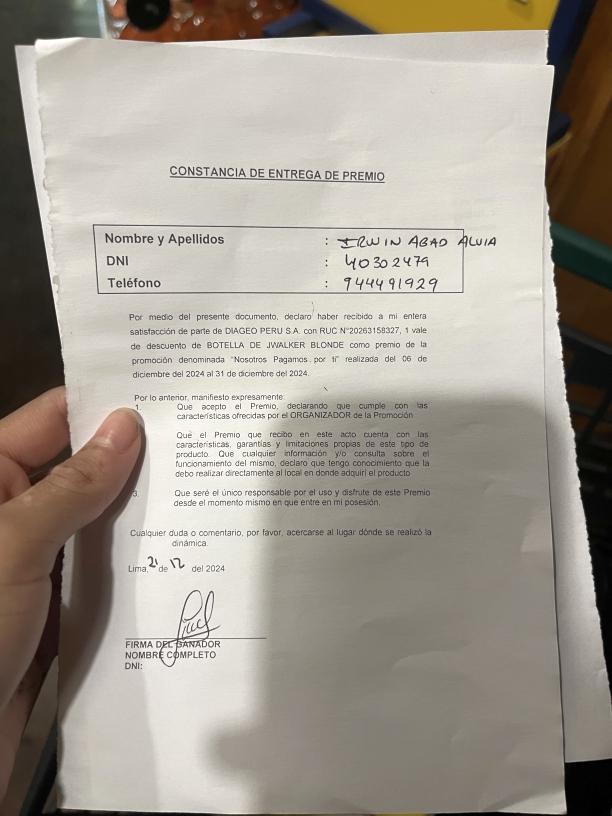 CONSTANCIA DE ENTREGA DE PREMIO
Nombre y Apellidos : IRWIN ABAD ALVIA
DNI : 40302479
Teléfono : 944491929
Por medio del presente documento, declaro haber recibido a mi entera
satisfacción de parte de DIAGEO PERU S.A. con RUC N°20263158327, 1 vale
de descuento de BOTELLA DE JWALKER BLONDE como premio de la
promoción denominada "Nosotros Pagamos por ti" realizada del 06 de
diciembre del 2024 al 31 de diciembre del 2024.
Por lo anterior, manifiesto expresamente:
1. Que acepto el Premio, declarando que cumple con las
características ofrecidas por el ORGANIZADOR de la Promoción
Que el Premio que recibo en este acto cuenta con las
características, garantías y limitaciones propias de este tipo de
producto. Que cualquier información y/o consulta sobre el
funcionamiento del mismo, declaro que tengo conocimiento que la
debo realizar directamente al local en donde adquirí el producto
3. Que seré el único responsable por el uso y disfrute de este Premio
desde el momento mismo en que entre en mi posesión.
Cualquier duda o comentario, por favor, acercarse al lugar dónde se realizó la
dinámica.
Lima, 21 de 12 del 2024
FIRMA DEL GANADOR
NOMBRE COMPLETO
DNI: